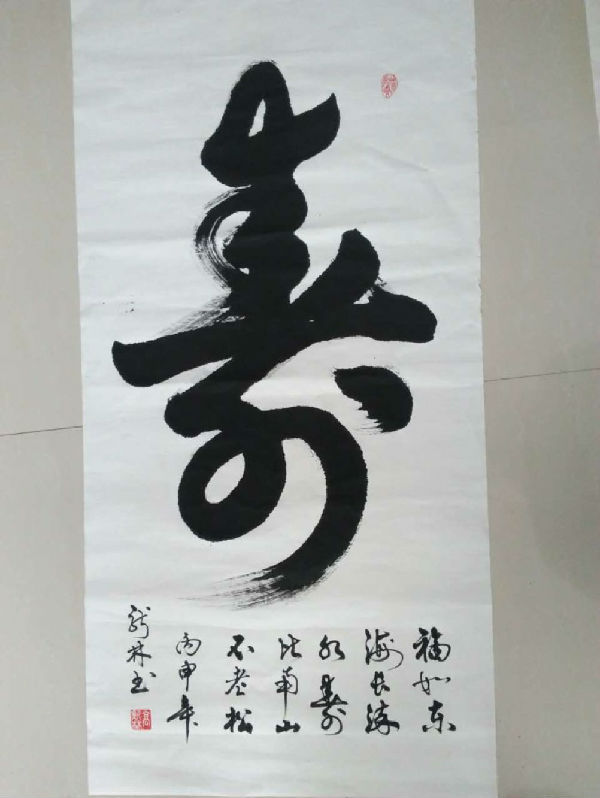 寿
福如东
海长流
水寿
比南山
不老松
丙申年
龙林书